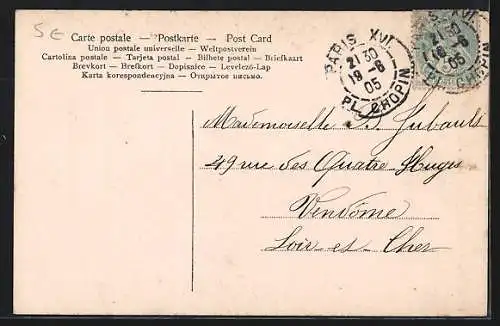 5€
Carte postale — Postkarte — Post Card
Union postale universelle — Weltpostverein
Cartolina postale — Tarjeta postal — Bilhete postal — Briefkaart
Brevkort — Brefkort — Dopisnice — Levelező-Lap
Karta korespondencyjna — Открытое письмо.
PARIS XVI
21 30
18-8
05
PL. CHOPIN
PARIS XVI
21 30
18-8
05
PL. CHOPIN
Mademoiselle Jubault
49 rue des Quatre Huyes
Vendôme
Loir et Cher